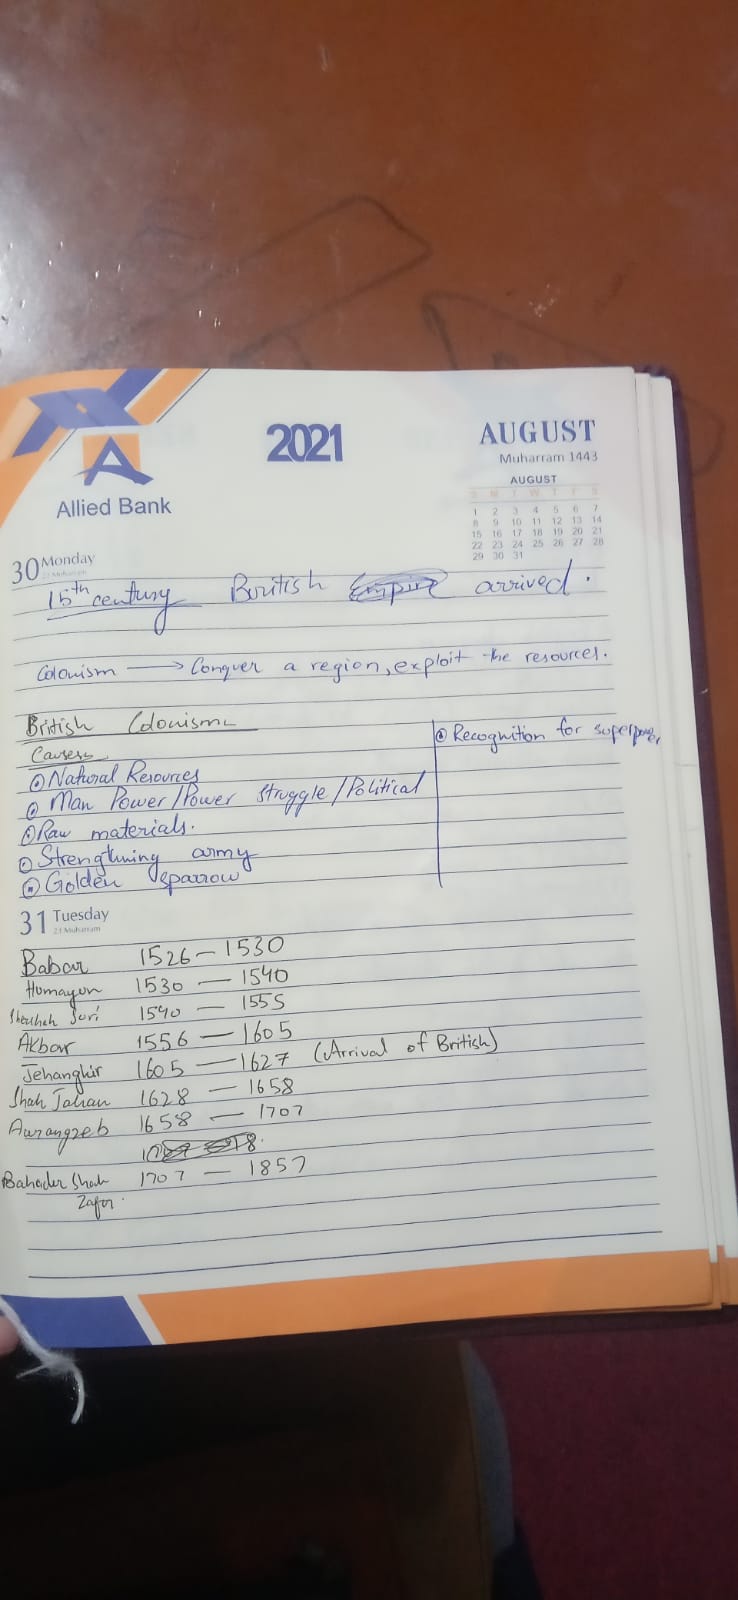 2021
AUGUST
Muharram 1443
AUGUST
S M T W T F S
1 2 3 4 5 6 7
8 9 10 11 12 13 14
15 16 17 18 19 20 21
22 23 24 25 26 27 28
29 30 31
Allied Bank
30 Monday
15th century British arrived.
Colonism → Conquer a region, exploit the resources.
British Colonism
Causes
Natural Resources
Man Power/Power Struggle/Political
Raw materials.
Strengthning army
Golden sparrow
Recognition for superpower
31 Tuesday
23 Muharram
Babar 1526 — 1530
Humayun 1530 — 1540
Shershah Suri 1540 — 1555
Akbar 1556 — 1605
Jehanghir 1605 — 1627 (Arrival of British)
Shah Jahan 1628 — 1658
Aurangzeb 1658 — 1707
Bahader Shah 1707 — 1857
Zafar.